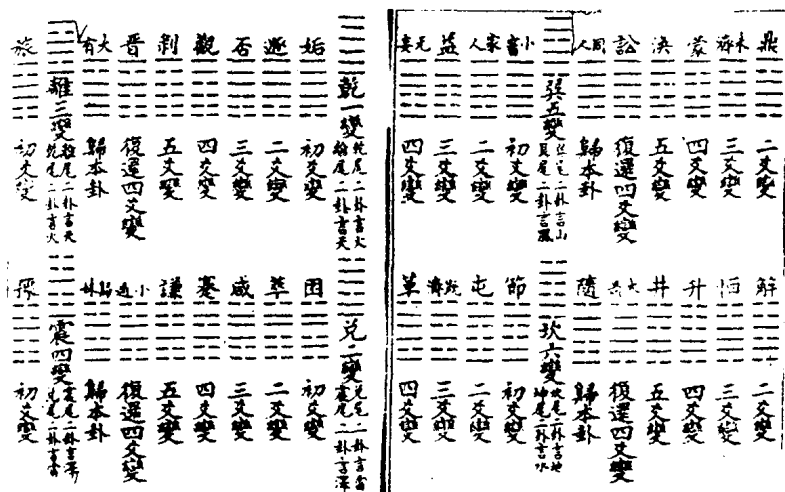 鼎 二爻變
未濟 三爻變
蒙 四爻變
渙 五爻變
訟 復還四爻變
同人 歸本卦
巽五變 巽尾二卦言山
艮尾二卦言風
小畜 初爻變
家人 二爻變
益 三爻變
无妄 四爻變
解 二爻變
恒 三爻變
升 四爻變
井 五爻變
大過 復還四爻變
隨 歸本卦
坎六變 坎尾二卦言地
坤尾二卦言水
節 初爻變
屯 二爻變
既濟 三爻變
革 四爻變
乾一變 乾尾二卦言火
離尾二卦言天
姤 初爻變
遯 二爻變
否 三爻變
觀 四爻變
剝 五爻變
晉 復還四爻變
大有 歸本卦
離三變 離尾二卦言天
乾尾二卦言火
旅 初爻變
兌二變 兌尾二卦言雷
震尾二卦言澤
困 初爻變
萃 二爻變
咸 三爻變
蹇 四爻變
謙 五爻變
小過 復還四爻變
歸妹 歸本卦
震四變 震尾二卦言澤
兌尾二卦言雷
豫 初爻變